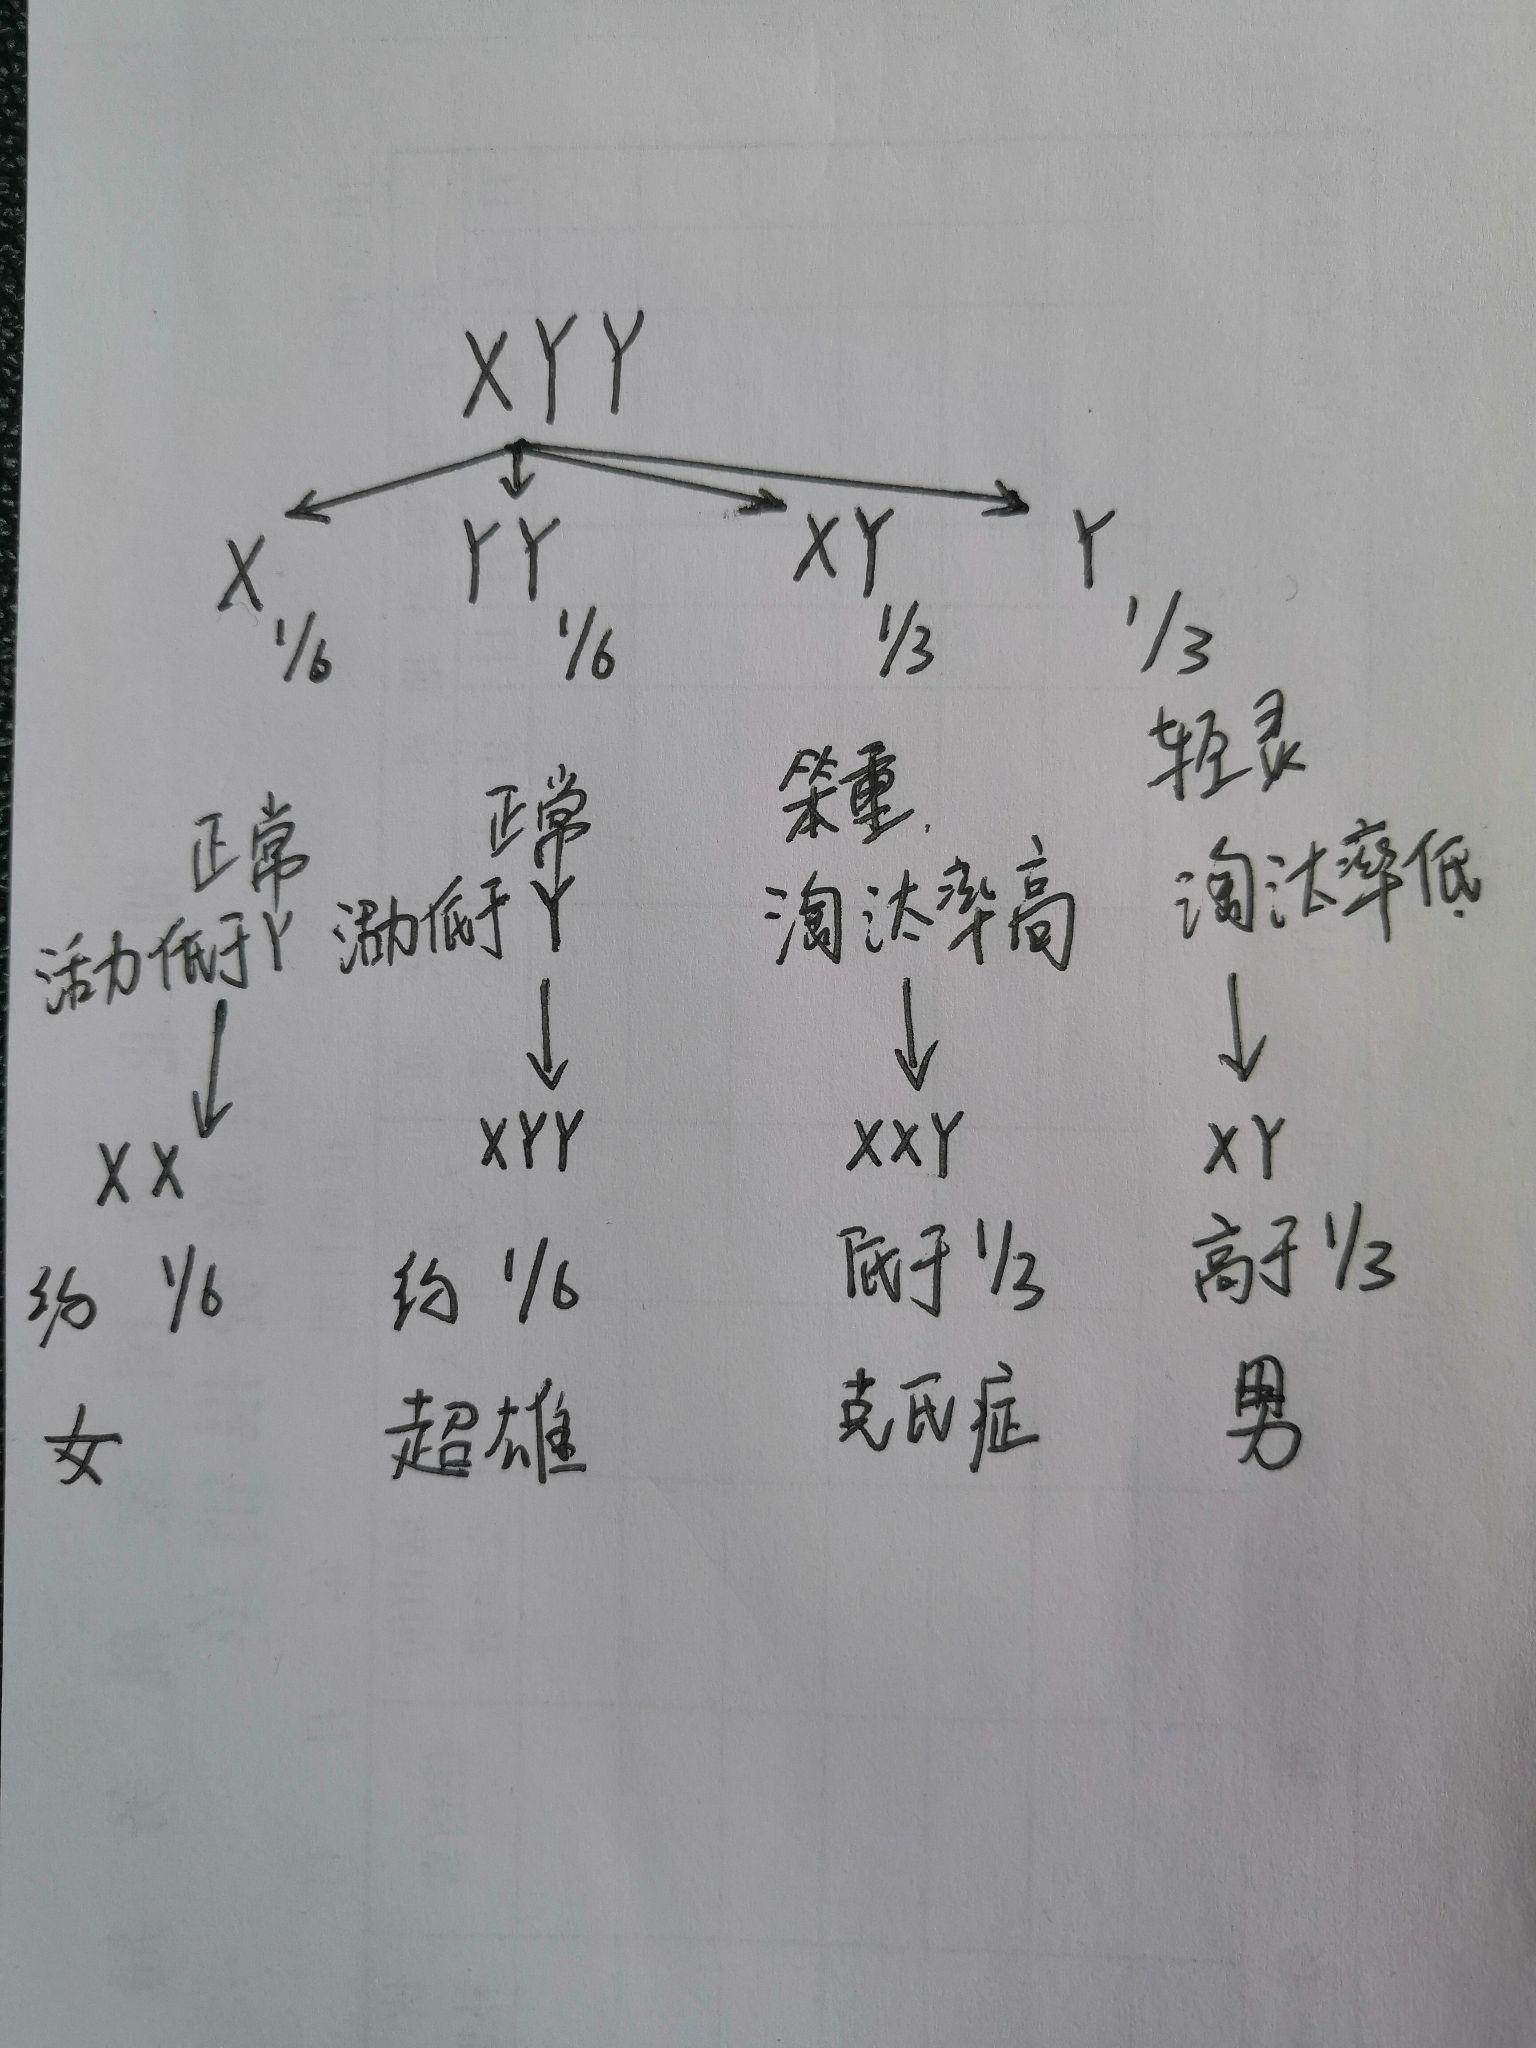 XYY
X YY XY Y
1/6 1/6 1/3 1/3
正常 正常 笨重. 轻灵
活力低于Y 活力低于Y 淘汰率高 淘汰率低.
XX XYY XXY XY
约 1/6 约 1/6 低于 1/3 高于 1/3
女 超雄 克氏症 男